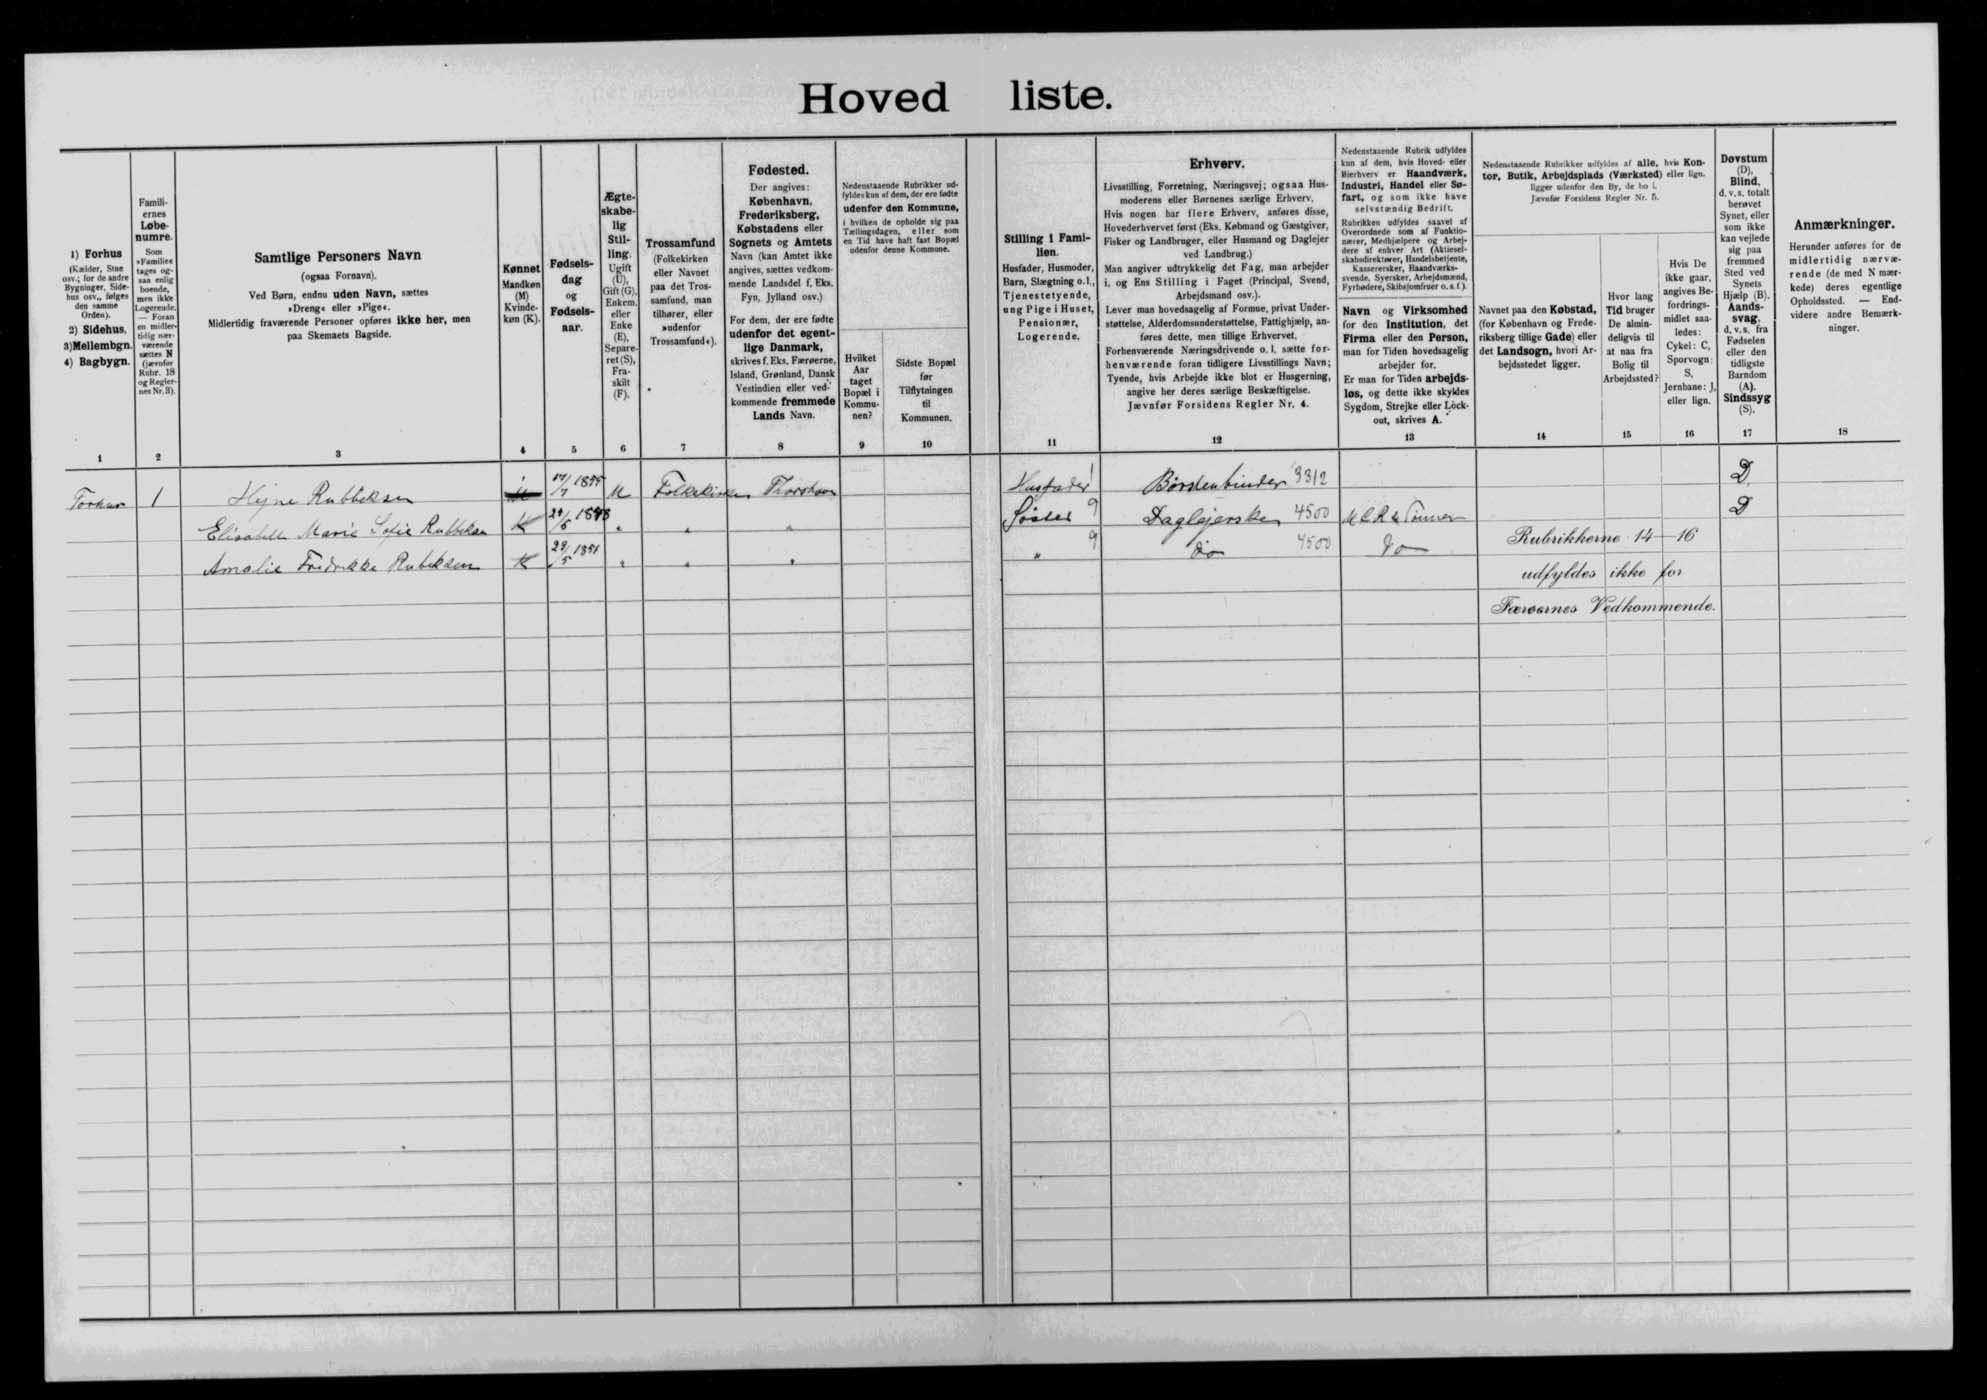 Hoved liste.
1) Forhus
(Kælder, Stue
osv.; for de andre
Bygninger, Side-
hus osv., følges
den samme
Orden).
2) Sidehus,
3) Mellembgn.
4) Bagbygn.
1
Famili-
ernes
Løbe-
numre.
Som
»Familie«
tages og-
saa enlig
boende,
men ikke
Logerende.
— Foran
en midler-
tidig nær-
værende
sættes N
(jævnfør
Rubr. 18
og Regler-
nes Nr. 3).
2
Samtlige Personers Navn
(ogsaa Fornavn).
Ved Børn, endnu uden Navn, sættes
»Dreng« eller »Pige«.
Midlertidig fraværende Personer opføres ikke her, men
paa Skemaets Bagside.
3
Kønnet
Mandkøn
(M)
Kvinde-
køn (K).
4
Fødsels-
dag
og
Fødsels-
aar.
5
Ægte-
skabe-
lig
Stil-
ling.
Ugift
(U),
Gift (G),
Enkem.
eller
Enke
(E),
Separe-
ret (S),
Fra-
skilt
(F).
6
Trossamfund
(Folkekirken
eller Navnet
paa det Tros-
samfund, man
tilhører, eller
»udenfor
Trossamfund«).
7
Fødested.
Der angives:
København,
Frederiksberg,
Købstadens eller
Sognets og Amtets
Navn (kan Amtet ikke
angives, sættes vedkom-
mende Landsdel f. Eks.
Fyn, Jylland osv.)
For dem, der ere fødte
udenfor det egent-
lige Danmark,
skrives f. Eks. Færøerne,
Island, Grønland, Dansk
Vestindien eller ved-
kommende fremmede
Lands Navn.
8
Nedenstaaende Rubrikker ud-
fyldes kun af dem, der ere fødte
udenfor den Kommune,
i hvilken de opholde sig paa
Tællingsdagen, eller som
en Tid have haft fast Bopæl
udenfor denne Kommune.
Hvilket
Aar
taget
Bopæl i
Kommu-
nen?
9
Sidste Bopæl
før
Tilflytningen
til
Kommunen.
10
Stilling i Fami-
lien.
Husfader, Husmoder,
Barn, Slægtning o. l.,
Tjenestetyende,
ung Pige i Huset,
Pensionær,
Logerende.
11
Erhverv.
Livsstilling, Forretning, Næringsvej; ogsaa Hus-
moderens eller Børnenes særlige Erhverv.
Hvis nogen har flere Erhverv, anføres disse,
Hovederhvervet først (Eks. Købmand og Gæstgiver,
Fisker og Landbruger, eller Husmand og Daglejer
ved Landbrug.)
Man angiver udtrykkelig det Fag, man arbejder
i, og Ens Stilling i Faget (Principal, Svend,
Arbejdsmand osv.).
Lever man hovedsagelig af Formue, privat Under-
støttelse, Alderdomsunderstøttelse, Fattighjælp, an-
føres dette, men tillige Erhvervet.
Forhenværende Næringsdrivende o. l. sætte for-
henværende foran tidligere Livsstillings Navn;
Tyende, hvis Arbejde ikke blot er Husgerning,
angive her deres særlige Beskæftigelse.
Jævnfør Forsidens Regler Nr. 4.
12
Nedenstaaende Rubrik udfyldes
kun af dem, hvis Hoved- eller
Bierhverv er Haandværk,
Industri, Handel eller Sø-
fart, og som ikke have
selvstændig Bedrift.
Rubrikken udfyldes saavel af
Overordnede som af Funktio-
nærer, Medhjælpere og Arbej-
dere af enhver Art (Aktiesel-
skabsdirektører, Handelsbetjente,
Kasserersker, Haandværks-
svende, Syersker, Arbejdsmænd,
Fyrbødere, Skibsjomfruer o. s. f.).
Navn og Virksomhed
for den Institution, det
Firma eller den Person,
man for Tiden hovedsagelig
arbejder for.
Er man for Tiden arbejds-
løs, og dette ikke skyldes
Sygdom, Strejke eller Lock-
out, skrives A.
13
Nedenstaaende Rubrikker udfyldes af alle, hvis Kon-
tor, Butik, Arbejdsplads (Værksted) eller lign.
ligger udenfor den By, de bo i.
Jævnfør Forsidens Regler Nr. 5.
Navnet paa den Købstad,
(for København og Frede-
riksberg tillige Gade) eller
det Landsogn, hvori Ar-
bejdsstedet ligger.
14
Hvor lang
Tid bruger
De almin-
deligvis til
at naa fra
Bolig til
Arbejdssted?
15
Hvis De
ikke gaar,
angives Be-
fordrings-
midlet saa-
ledes:
Cykel: C,
Sporvogn:
S,
Jernbane: J,
eller lign.
16
Døvstum
(D),
Blind,
d. v. s. totalt
berøvet
Synet, eller
som ikke
kan vejlede
sig paa
fremmed
Sted ved
Synets
Hjælp (B).
Aands-
svag,
d. v. s. fra
Fødselen
eller den
tidligste
Barndom
(A).
Sindssyg
(S).
17
Anmærkninger.
Herunder anføres for de
midlertidig nærvæ-
rende (de med N mær-
kede) deres egentlige
Opholdssted. — End-
videre andre Bemærk-
ninger.
18
1 Hejne Rubbeksen 1855 Folkekirken Thorshavn Husfader 1 Børstenbinder 3312 D
Elisabeth Marie Sofie Rubbeksen K 1848 " " " Søster 9 Daglejerske 4500 D
Amalie Fredrikke Rubeksen K 29/5 1851 " " " " 9 do 4500 do
Rubrikkerne 14—16
udfyldes ikke for
Færøernes Vedkommende.